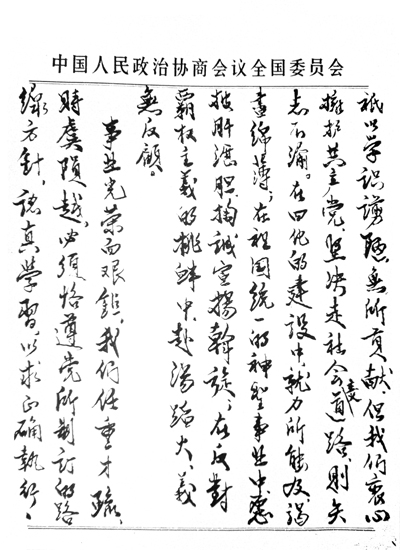 中国人民政治协商会议全国委员会
祇以学识谫陋无所贡献。但我们衷心
拥护共产党，坚决走社会主义道路，则矢
志不渝。在四化的建设中，就力所能及，竭
尽绵薄；在祖国统一的神圣事业中，愿
披肝沥胆，掬诚宣扬斡旋；在反对
霸权主义的挑衅中，赴汤蹈火，义
无反顾。
事业光荣而艰钜，我们任重才疏，
时虞陨越，必须恪遵党所制订的路
线方针，认真学习，以求正确执行、